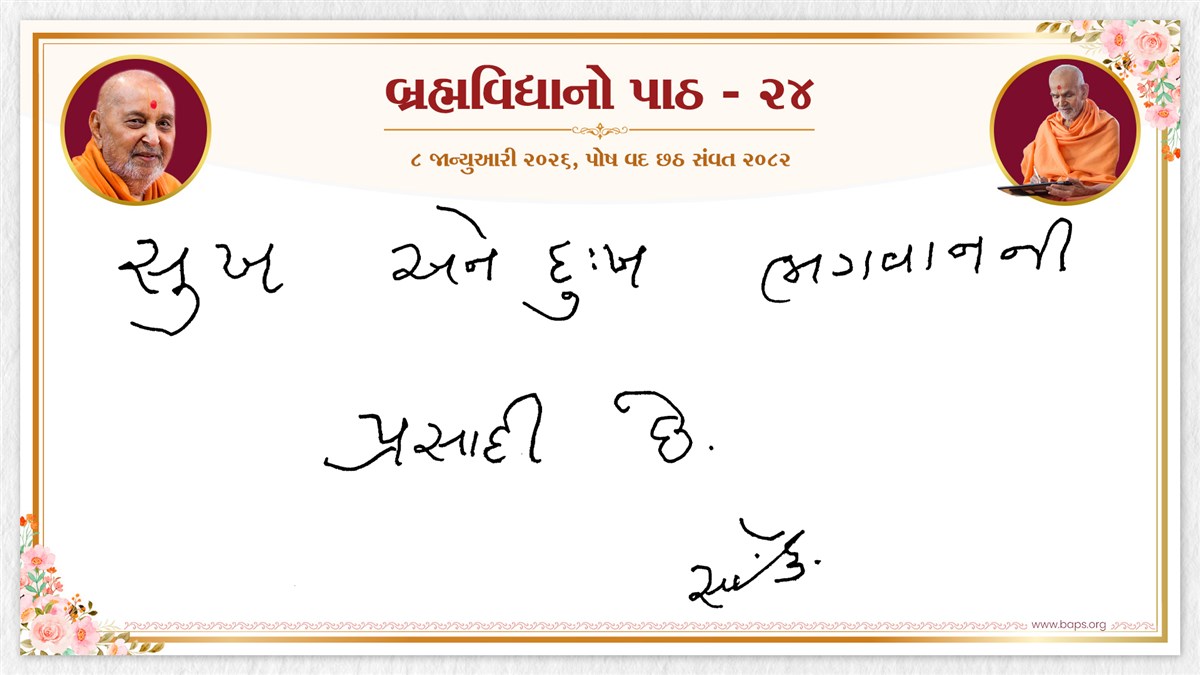 બ્રહ્મવિદ્યાનો પાઠ - ૨૪
૮ જાન્યુઆરી ૨૦૨૬, પોષ વદ છઠ સંવત ૨૦૮૨
સુખ અને દુઃખ ભગવાનની
પ્રસાદી છે.
www.baps.org